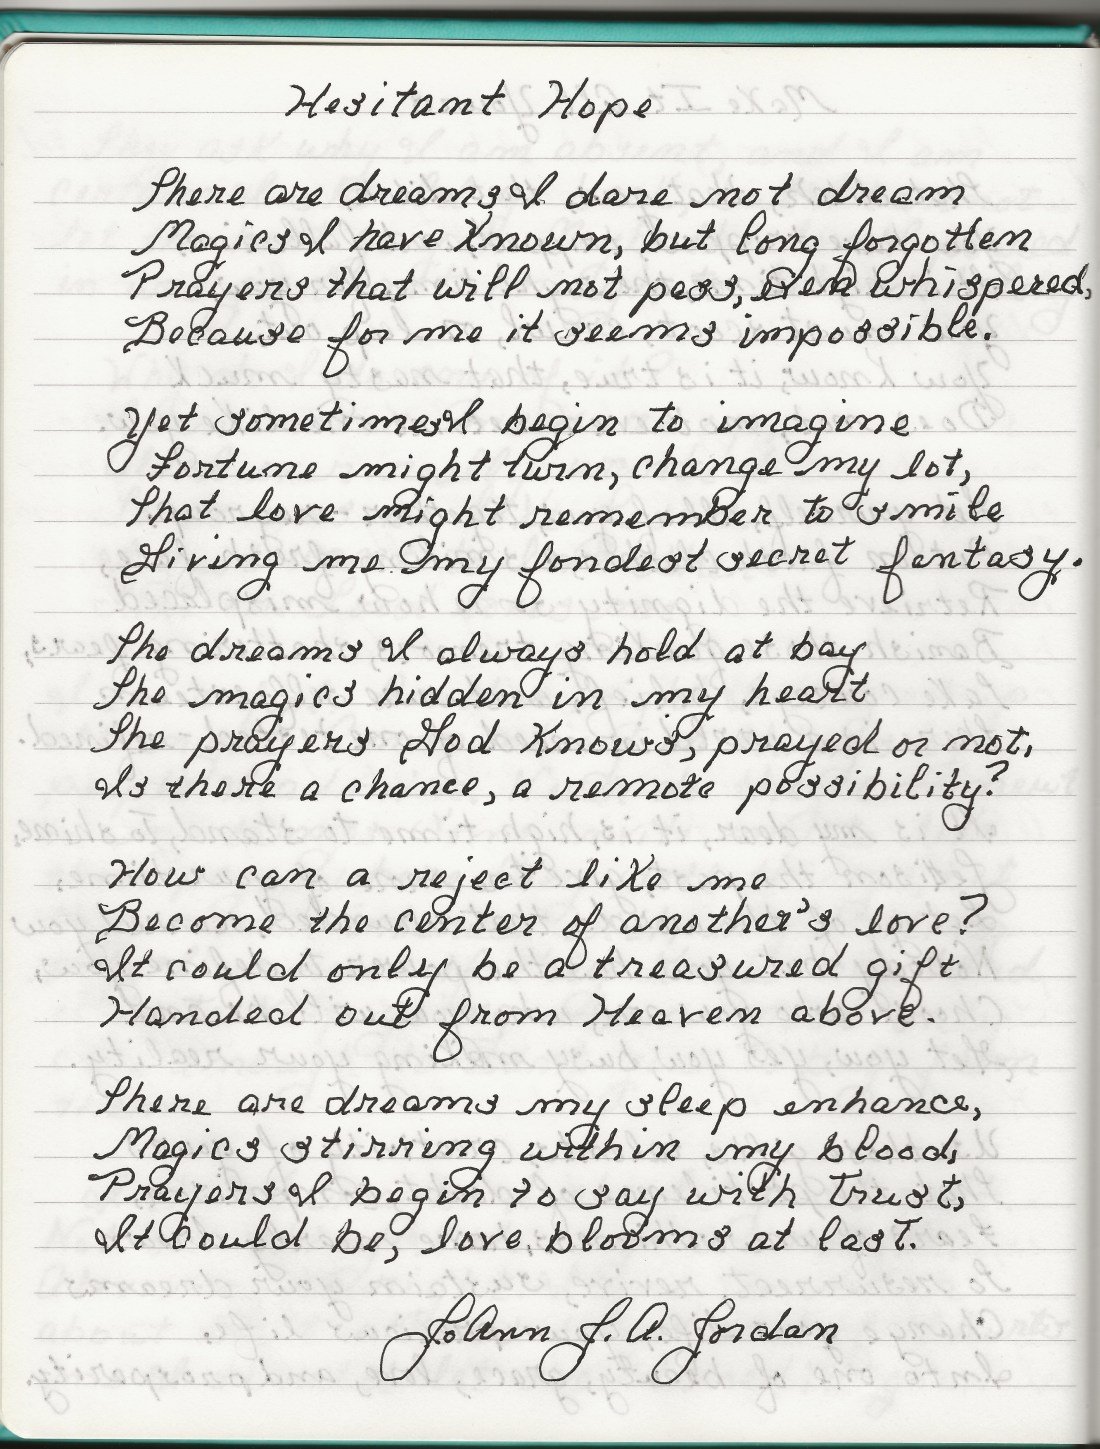 Hesitant Hope
There are dreams I dare not dream
Magics I have known, but long forgotten
Prayers that will not pass, even whispered,
Because for me it seems impossible.
Yet sometimes I begin to imagine
Fortune might turn, change my lot,
That love might remember to smile
Giving me my fondest secret fantasy.
The dreams I always hold at bay
The magics hidden in my heart
The prayers God knows, prayed or not,
Is there a chance, a remote possibility?
How can a reject like me
Become the center of another's love?
It could only be a treasured gift
Handed out from Heaven above.
There are dreams my sleep enhance,
Magics stirring within my blood,
Prayers I begin to say with trust,
It could be, love blooms at last.
JoAnn J. A. Jordan